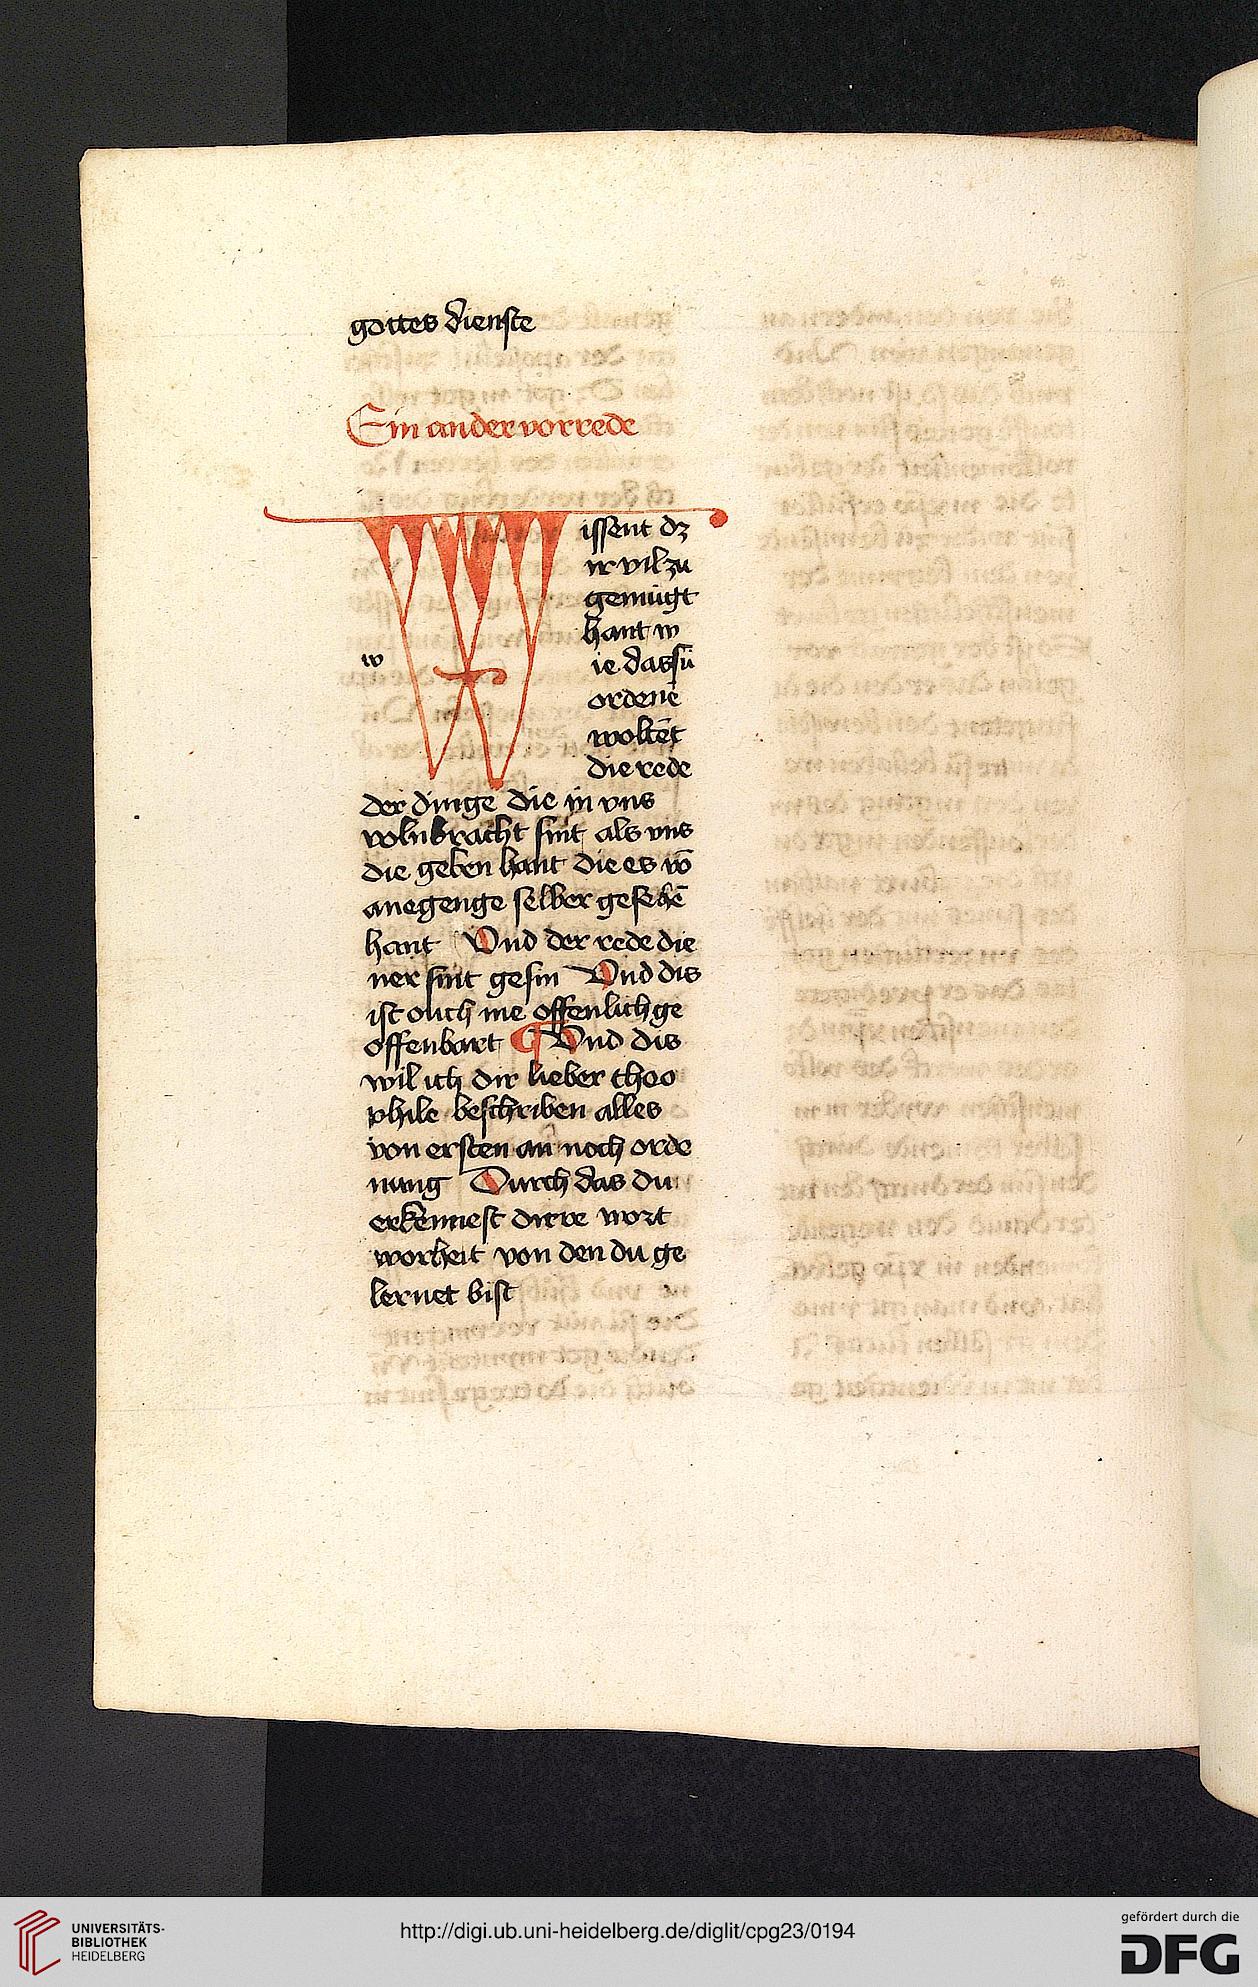 gottes dienste
Ein ander vorrede
Wissent dz
ir vil zu
gemügt
hant w
w
ie das sü
ordenē
woltēt
die rede
der dinge die in vns
volnbracht sint als vns
die geben hant die es vō
anegenge selber gesehē
hant Vnd der rede die
ner sint gesin Vnd dis
ist ouch me offenlich ge
offenbart Vnd dis
wil ich dir lieber theo
phile beschriben alles
von ersten an noch orde
nung Durch das du
erkennest dirre wort
worheit von den du ge
lernet bist
UNIVERSITÄTS-
BIBLIOTHEK
HEIDELBERG
http://digi.ub.uni-heidelberg.de/diglit/cpg23/0194
gefördert durch die
DFG